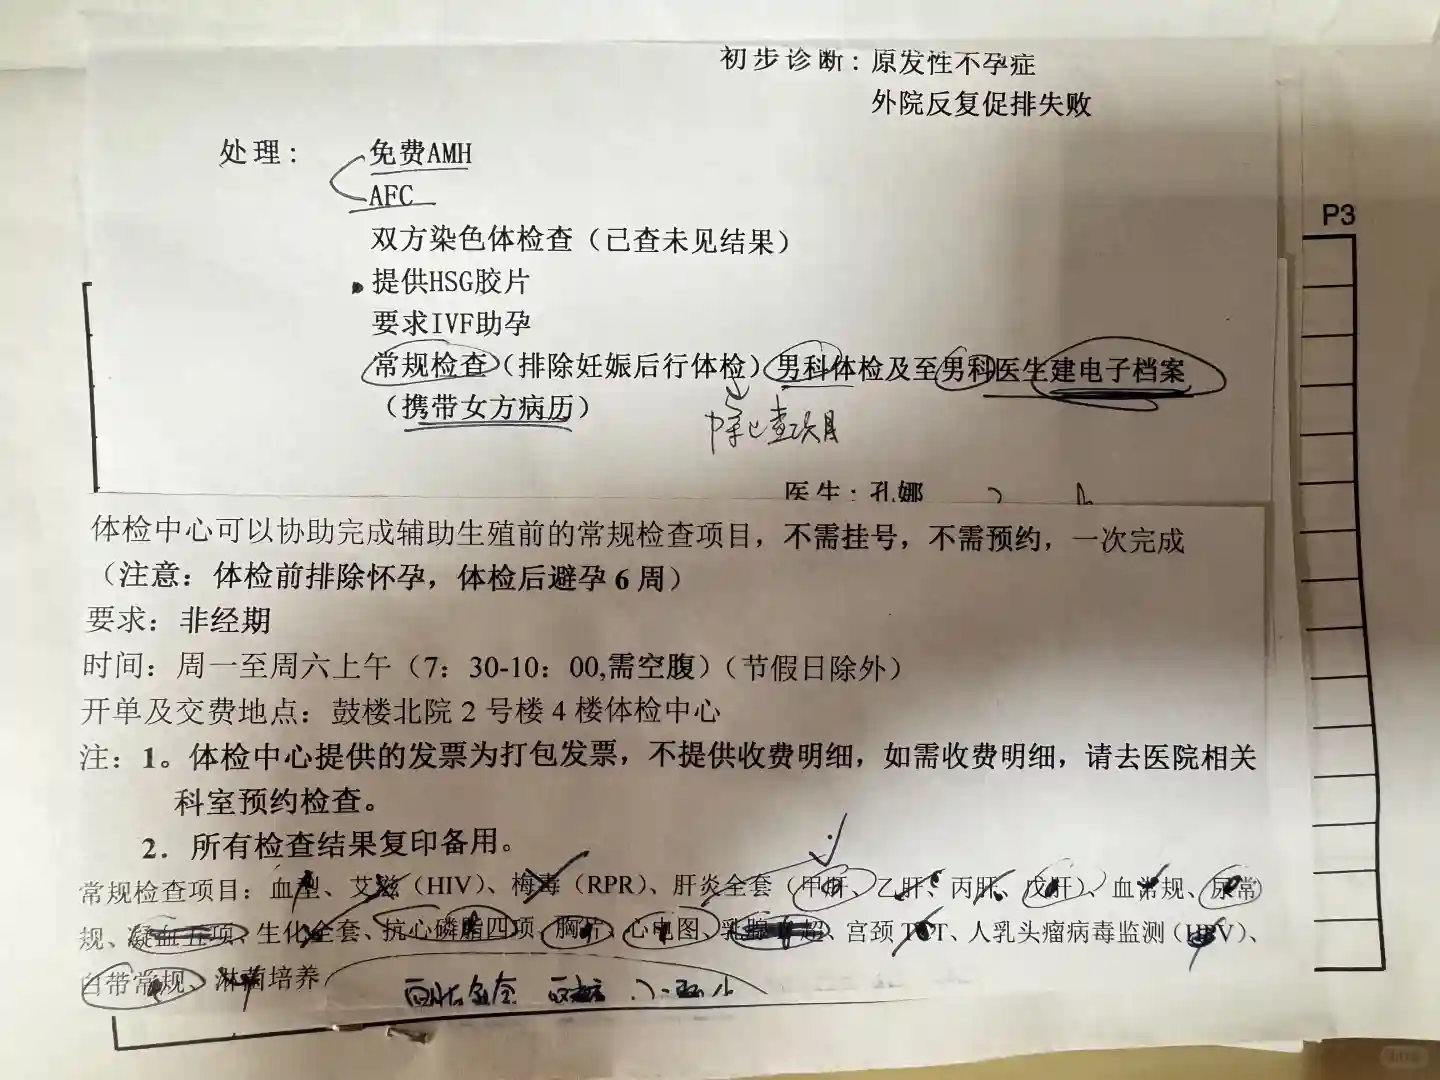 初步诊断：原发性不孕症
外院反复促排失败
处理：免费AMH
AFC
双方染色体检查（已查未见结果）
P3
提供HSG胶片
要求IVF助孕
常规检查（排除妊娠后行体检）男科体检及至男科医生建电子档案
（携带女方病历）
已查项目
医生：孔娜
体检中心可以协助完成辅助生殖前的常规检查项目，不需挂号，不需预约，一次完成
（注意：体检前排除怀孕，体检后避孕6周）
要求：非经期
时间：周一至周六上午（7：30-10：00,需空腹）（节假日除外）
开单及交费地点：鼓楼北院2号楼4楼体检中心
注：1。体检中心提供的发票为打包发票，不提供收费明细，如需收费明细，请去医院相关
科室预约检查。
2．所有检查结果复印备用。
常规检查项目：血型、艾滋（HIV）、梅毒（RPR）、肝炎全套（甲肝、乙肝、丙肝、戊肝）、血常规、尿常
规、凝血五项、生化全套、抗心磷脂四项、胸片、心电图、乳腺B超、宫颈TCT、人乳头瘤病毒监测（HPV）、
白带常规、淋菌培养